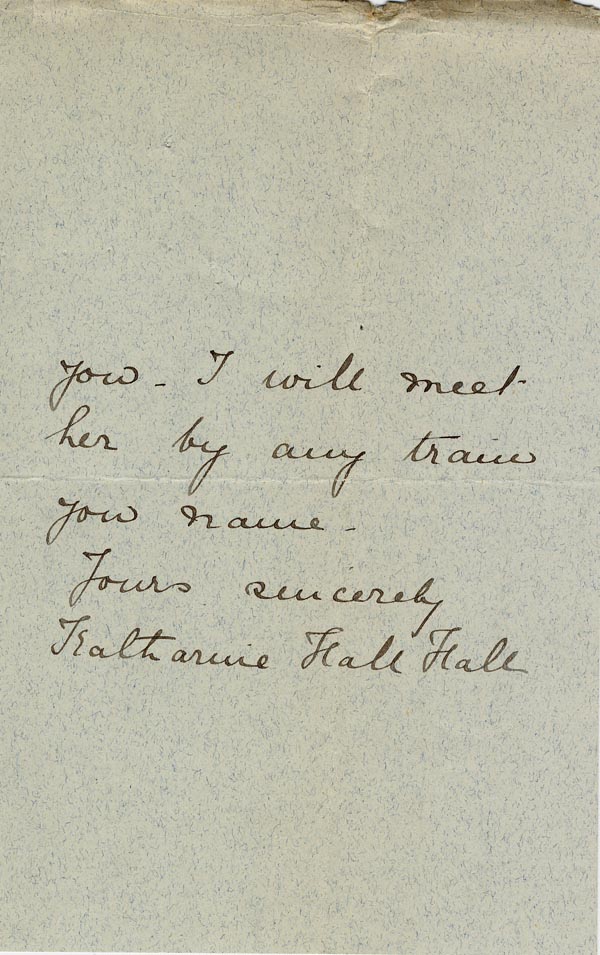 you - I will meet
her by any train
you name -
Yours sincerely
Katharine Hall Hall